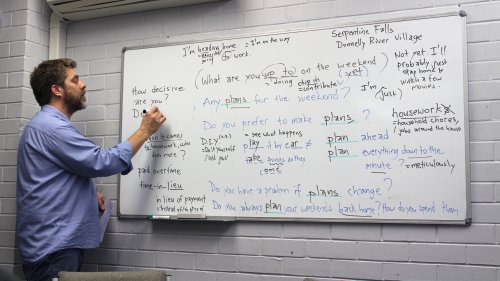 Serpentine Falls
Donnelly River Village
I'm heading home = I'm on the way
going to work.
How decisive
are you?
Do
(What are you up to on the weekend)
(yet)
= doing
chip in
= contribute
I'm (just)
Not yet. I'll
probably just
stay home &
watch a few
movies.
Any plans for the weekend?
Do you prefer to make plans?
housework
= household chores,
/ jobs around the house
When it comes
to housework, who
does more?
D.I.Y.
do it yourself
/ odd jobs
= see what happens
play it by ear ≠ plan ahead
take things as they come
plan everything down to the
minute? = meticulously
paid overtime
time-in-lieu
in lieu of payment
= instead of
Do you have a problem if plans change?
Do you always plan your weekends back home? How do you spend them